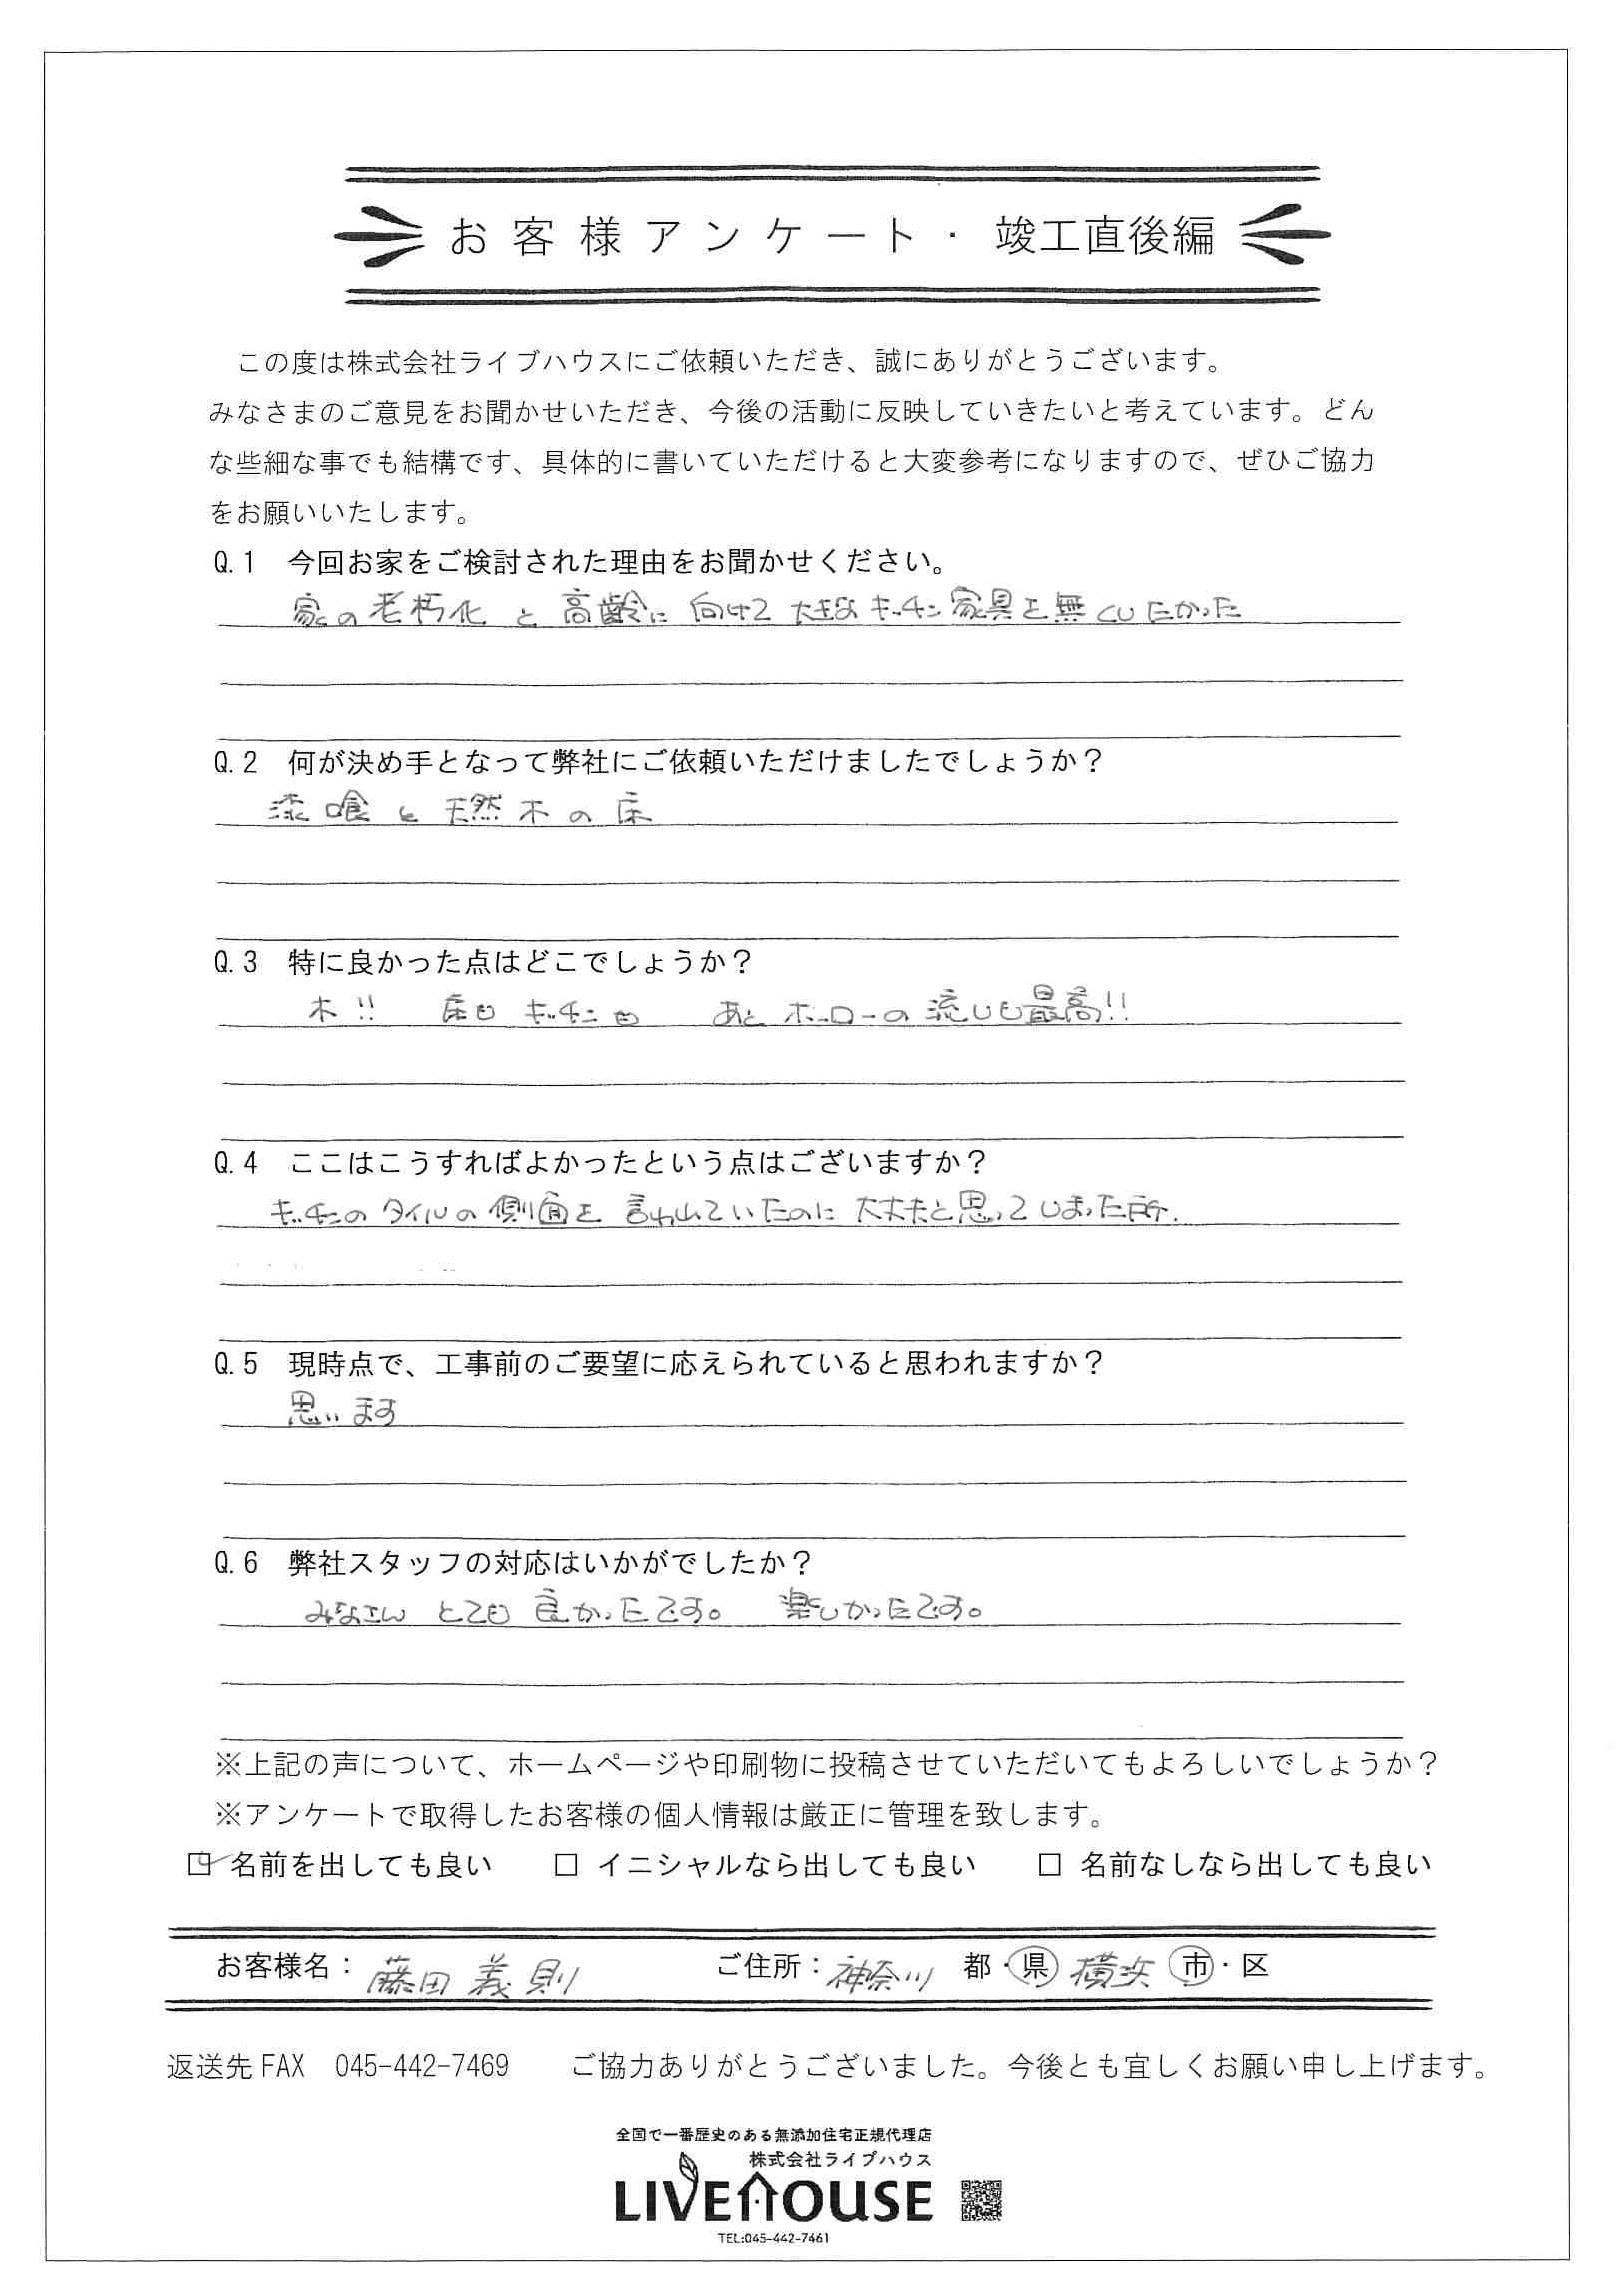 お客様アンケート・竣工直後編
この度は株式会社ライブハウスにご依頼いただき、誠にありがとうございます。
みなさまのご意見をお聞かせいただき、今後の活動に反映していきたいと考えています。どん
な些細な事でも結構です、具体的に書いていただけると大変参考になりますので、ぜひご協力
をお願いいたします。
Q.1 今回お家をご検討された理由をお聞かせください。
家の老朽化と高齢に向けて大きなキッチン家具を無くしたかった
Q.2 何が決め手となって弊社にご依頼いただけましたでしょうか？
漆喰と天然木の床
Q.3 特に良かった点はどこでしょうか？
木!! 床もキッチンも あとホーローの流しも最高!!
Q.4 ここはこうすればよかったという点はございますか？
キッチンのタイルの側面を言われていたのに大丈夫と思ってしまった所.
Q.5 現時点で、工事前のご要望に応えられていると思われますか？
思います
Q.6 弊社スタッフの対応はいかがでしたか？
みなさんとても良かったです。 楽しかったです。
※上記の声について、ホームページや印刷物に投稿させていただいてもよろしいでしょうか？
※アンケートで取得したお客様の個人情報は厳正に管理を致します。
☑ 名前を出しても良い □ イニシャルなら出しても良い □ 名前なしなら出しても良い
お客様名：藤田義則 ご住所：神奈川 都・県 横浜 市・区
返送先 FAX 045-442-7469 ご協力ありがとうございました。今後とも宜しくお願い申し上げます。
全国で一番歴史のある無添加住宅正規代理店
株式会社ライブハウス
LIVEHOUSE
TEL:045-442-7461